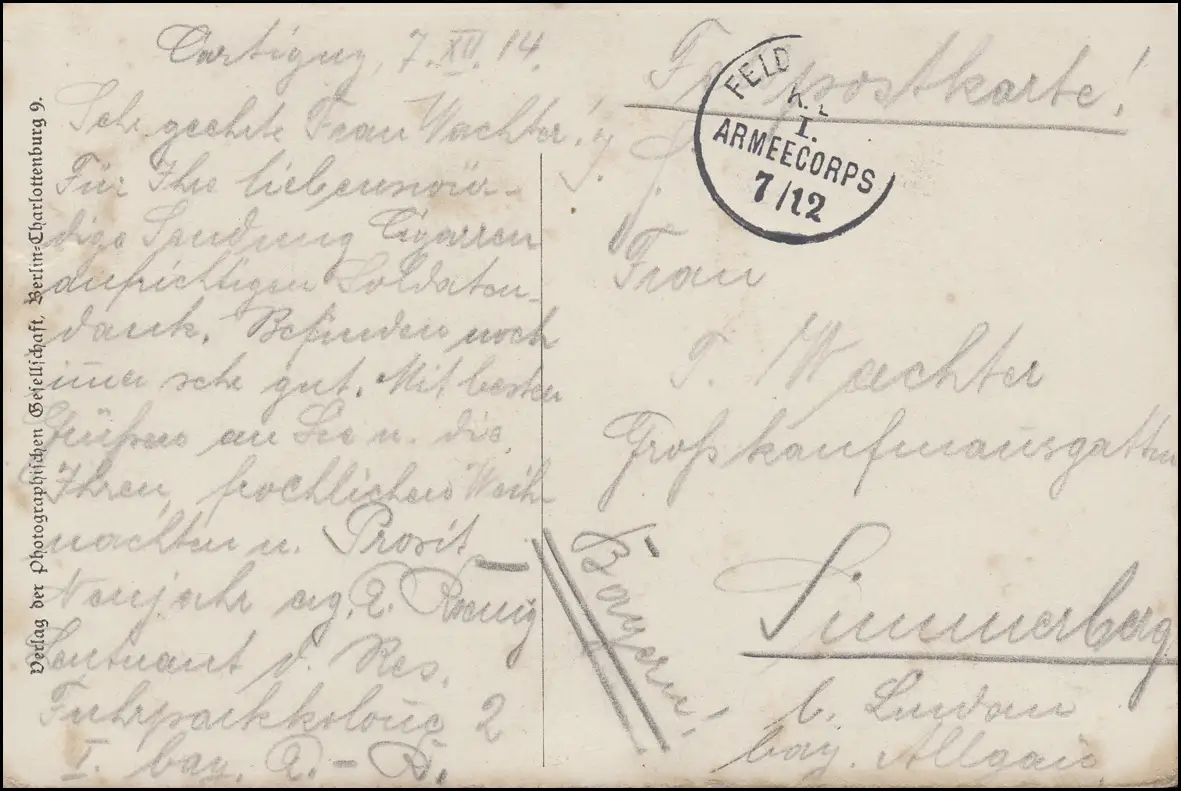 Cartigny, 7. XII. 14.
Sehr geehrte Frau Wachter!
Für Ihre liebenswür-
dige Sendung Cigarren
aufrichtigen Soldaten-
dank. Befinden noch
imer sehr gut. Mit besten
Grüßen an Sie u. die
Ihren, froehlichen Weih-
nachten u. Prosit
Neujahr erg.
Leutnant d. Res.
Fuhrparkkolone 2
I. bay. A.-K.
Feldpostkarte!
FELD
K.
I.
ARMEECORPS
7/12
Frau
T. Wachter
Großkaufmannsgattin
Simmerberg
b. Lindau
bay. Allgäu
Bayern!
Verlag der Photographischen Gesellschaft, Berlin-Charlottenburg 9.